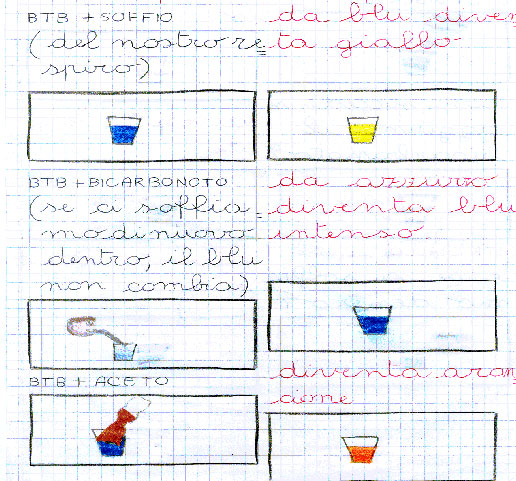 BTB + SOFFIO
(del nostro re=
spiro)
da blu diven
ta giallo
BTB + BICARBONOTO
(se ci soffia=
modinuovo
dentro, il blu
non combia)
da azzurro
diventa blu
intenso
BTB + ACETO
diventa aran
cione